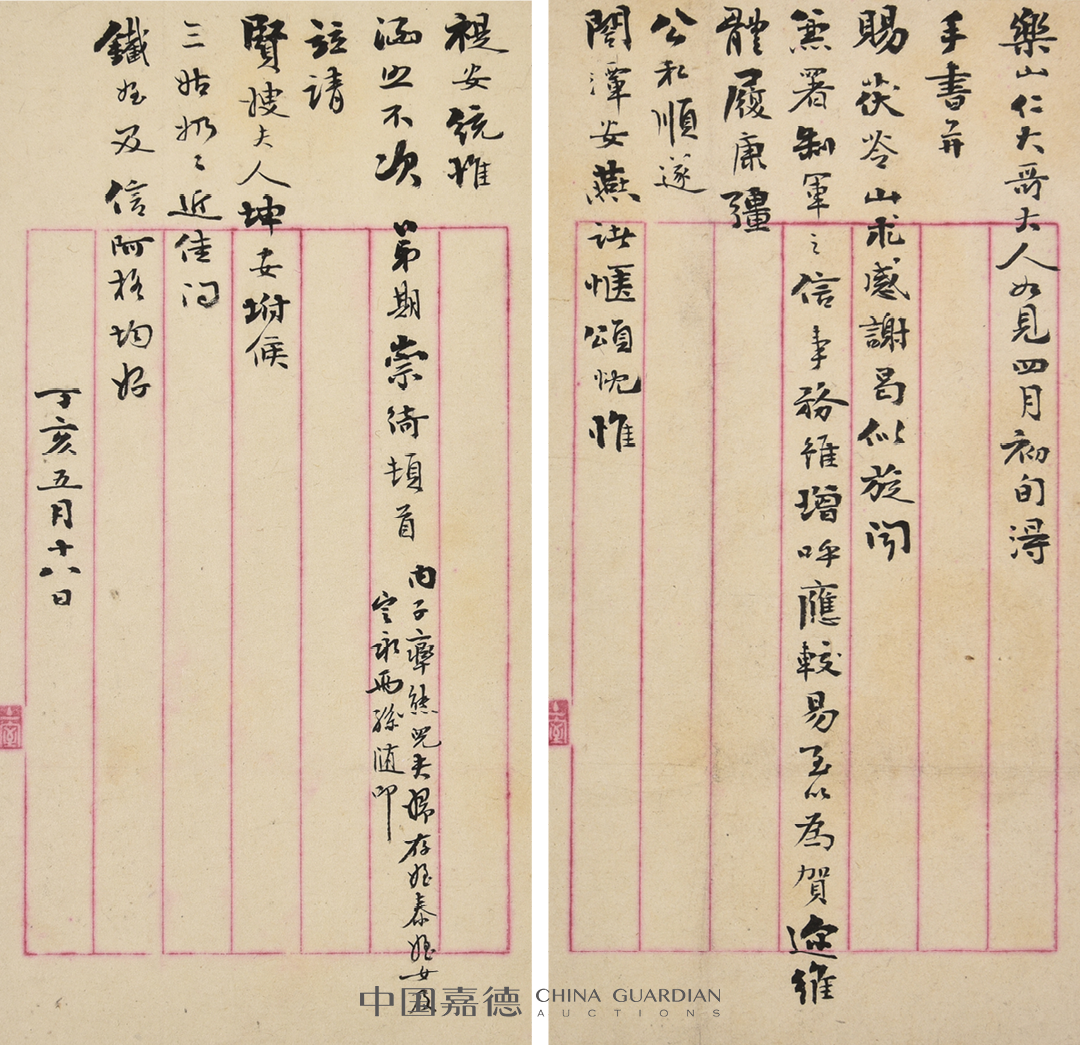 樂山仁大哥大人如見四月初旬得
手書并
賜茯苓山朮感謝曷似旋聞
兼署制軍之信事務雖增呼應較易至以為賀迩維
體履康彊
公私順遂
閤潭安燕詠愜頌忱惟
禔安統惟
涵照不次 第期崇綺頓首 內子率熊兒夫婦存姪泰姪女及
定永兩孫随叩
竝請
賢嫂夫人坤安坿候
三姑奶〻近佳问
鐵姪及信阿格均好
丁亥五月十八日
中国嘉德 CHINA GUARDIAN
AUCTIONS